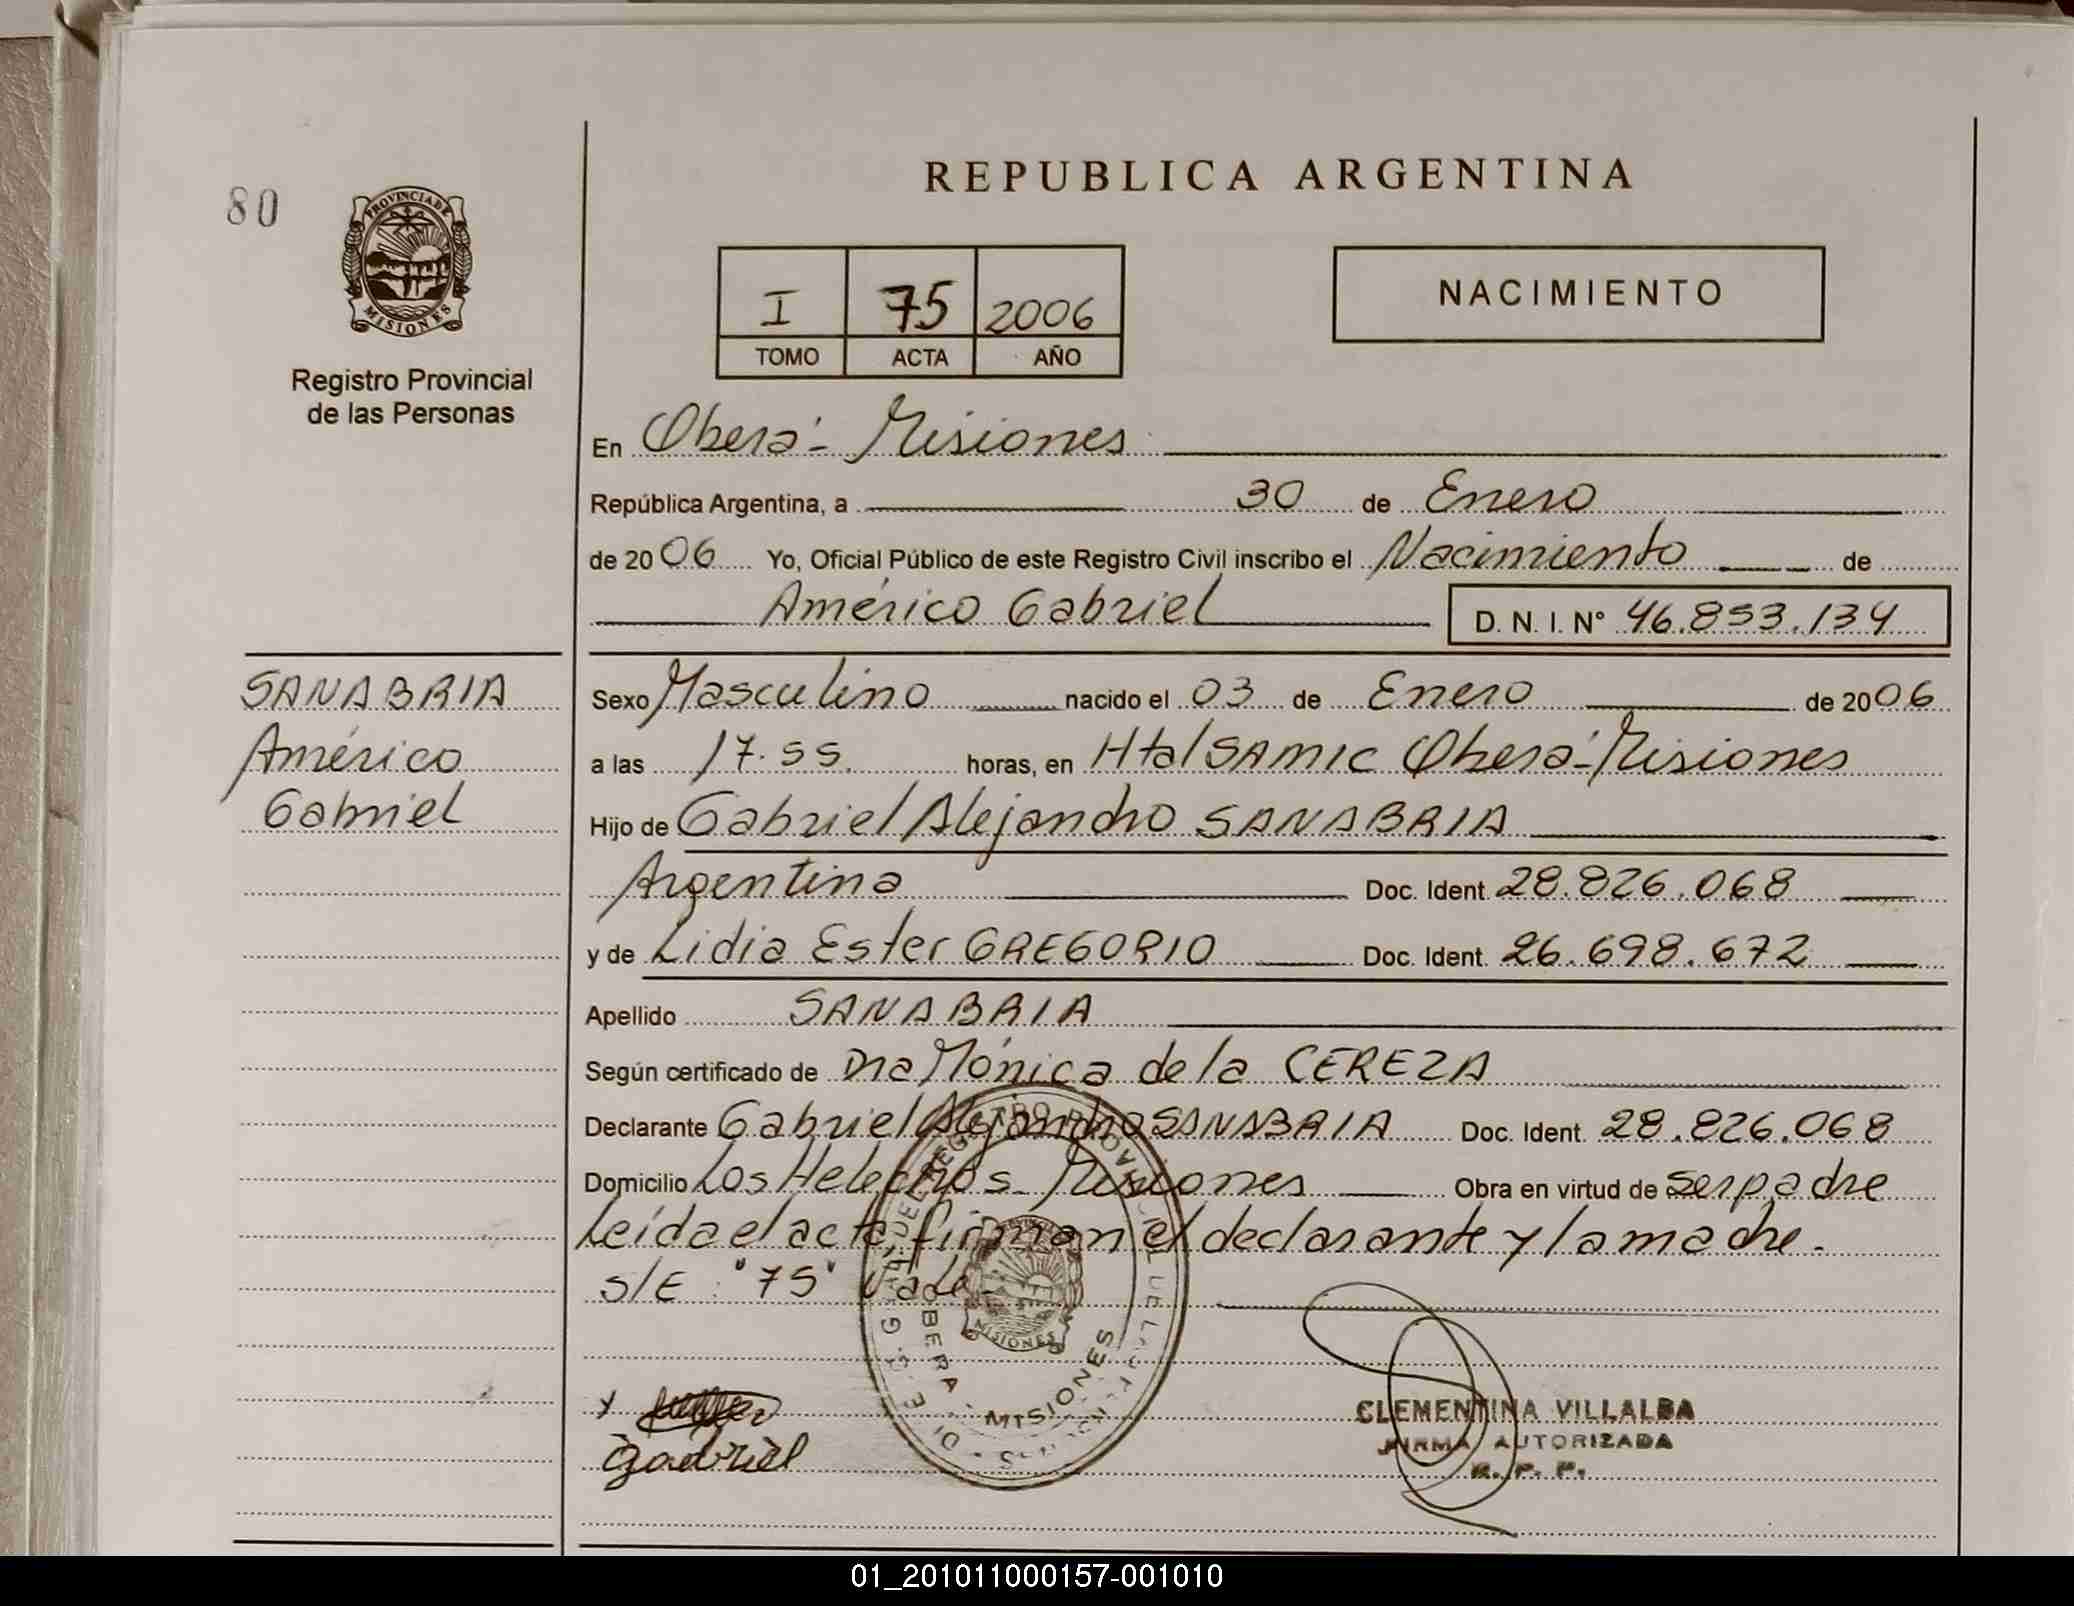 REPUBLICA ARGENTINA
80
PROVINCIA DE
MISIONES
Registro Provincial
de las Personas
I 75 2006
TOMO ACTA AÑO
NACIMIENTO
En Oberá - Misiones
República Argentina, a 30 de Enero
de 2006 Yo, Oficial Público de este Registro Civil inscribo el Nacimiento de
Américo Gabriel D. N. I. Nº 46.853.134
SANABRIA
Américo
Gabriel
Sexo Masculino nacido el 03 de Enero de 2006
a las 17.55 horas, en Htal SAMIC Oberá - Misiones
Hijo de Gabriel Alejandro SANABRIA
Argentina Doc. Ident. 28.826.068
y de Lidia Ester GREGORIO Doc. Ident. 26.698.672
Apellido SANABRIA
Según certificado de Dra Mónica de la CEREZA
Declarante Gabriel Alejandro SANABRIA Doc. Ident. 28.826.068
Domicilio Los Helechos - Misiones Obra en virtud de ser padre
Leída el acta, firman el declarante y la madre.
S/E : "75" Vale
OBERA
MISIONES
MISIONES
gabriel
CLEMENTINA VILLALBA
FIRMA AUTORIZADA
R. P. P.
01_201011000157-001010